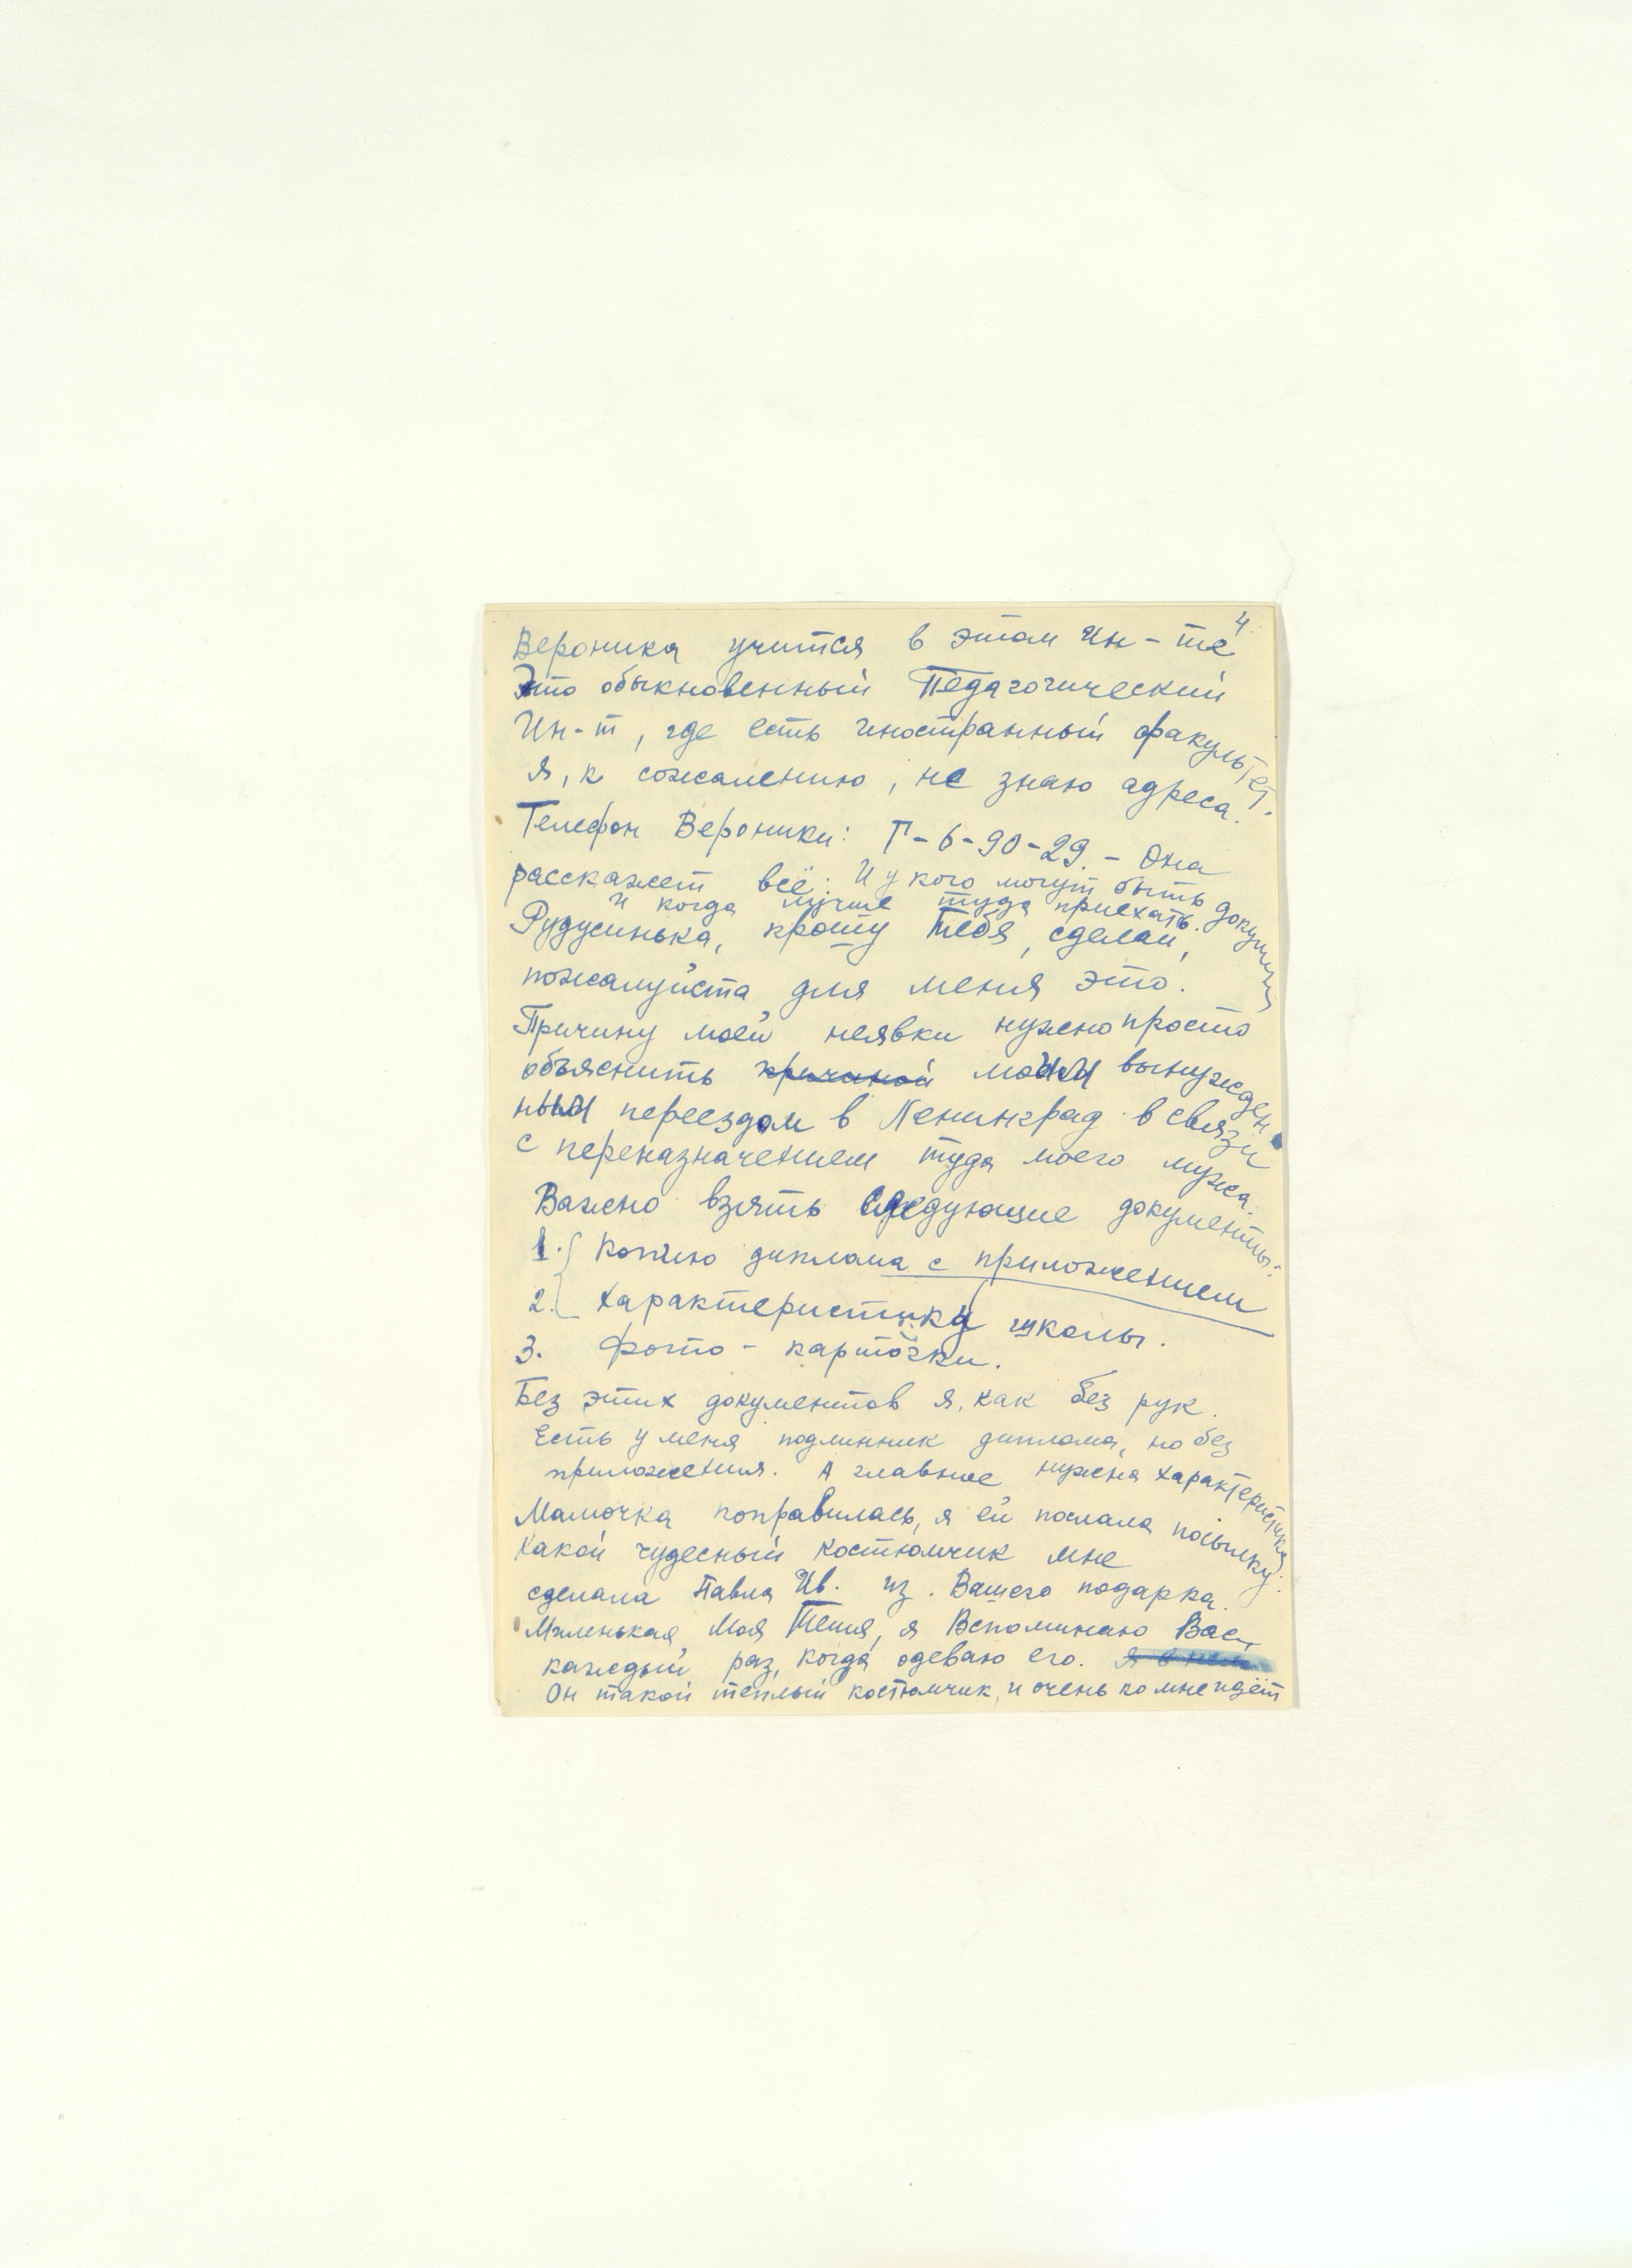 4.
Вероника учится в этом Ин-те
Это обыкновенный Педагогический
Ин-т, где есть иностранный факультет.
Я, к сожалению, не знаю адреса.
Телефон Вероники: Г-6-90-29. - Она
расскажет всё: И у кого могут быть документы
и когда лучше туда приехать.
Рудусинька, прошу Тебя, сделай,
пожалуйста для меня это.
Причину моей неявки нужно просто
объяснить причиной моим вынужден
ным переездом в Ленинград в связи
с переназначением туда моего мужа.
Важно взять следующие документы:
1. Копию диплома с приложением
2. Характеристику школы.
3. Фото-карточки.
Без этих документов я, как без рук.
Есть у меня подлинник диплома, но без
приложения. А главное нужна характеристика
Мамочка поправилась, я ей послала посылку.
Какой чудесный костюмчик мне
сделала Павла Ив. из Вашего подарка.
Маленькая Моя Тетя, я Вспоминаю Вас,
каждый раз, когда одеваю его. Я в нем
Он такой теплый костюмчик, и очень ко мне идёт